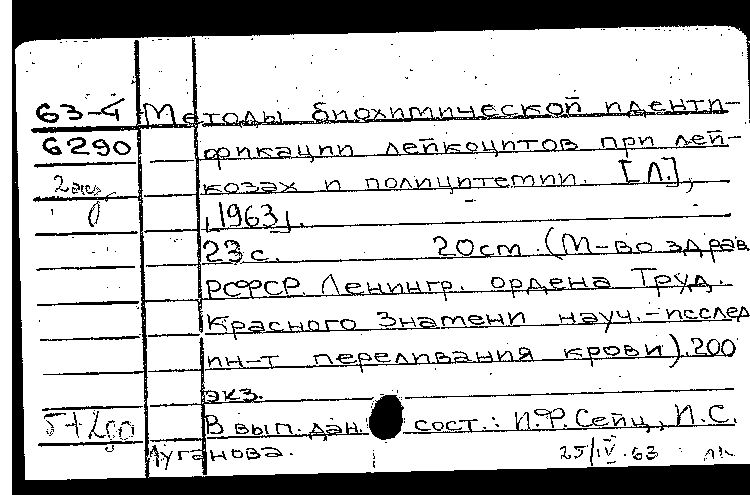 63-4 Методы биохимической иденти-
6290 фикации лейкоцитов при лей-
2 экз козах и полицитемии. [Л.],
1963.
23 с. 20 см. (М-во здрав
РСФСР. Ленингр. ордена Труд.
Красного Знамени науч.-исслед
ин-т переливания крови). 200
экз.
В вып. дан. сост.: И.Ф. Сейц, И.С.
Луганова. 25/IV.63